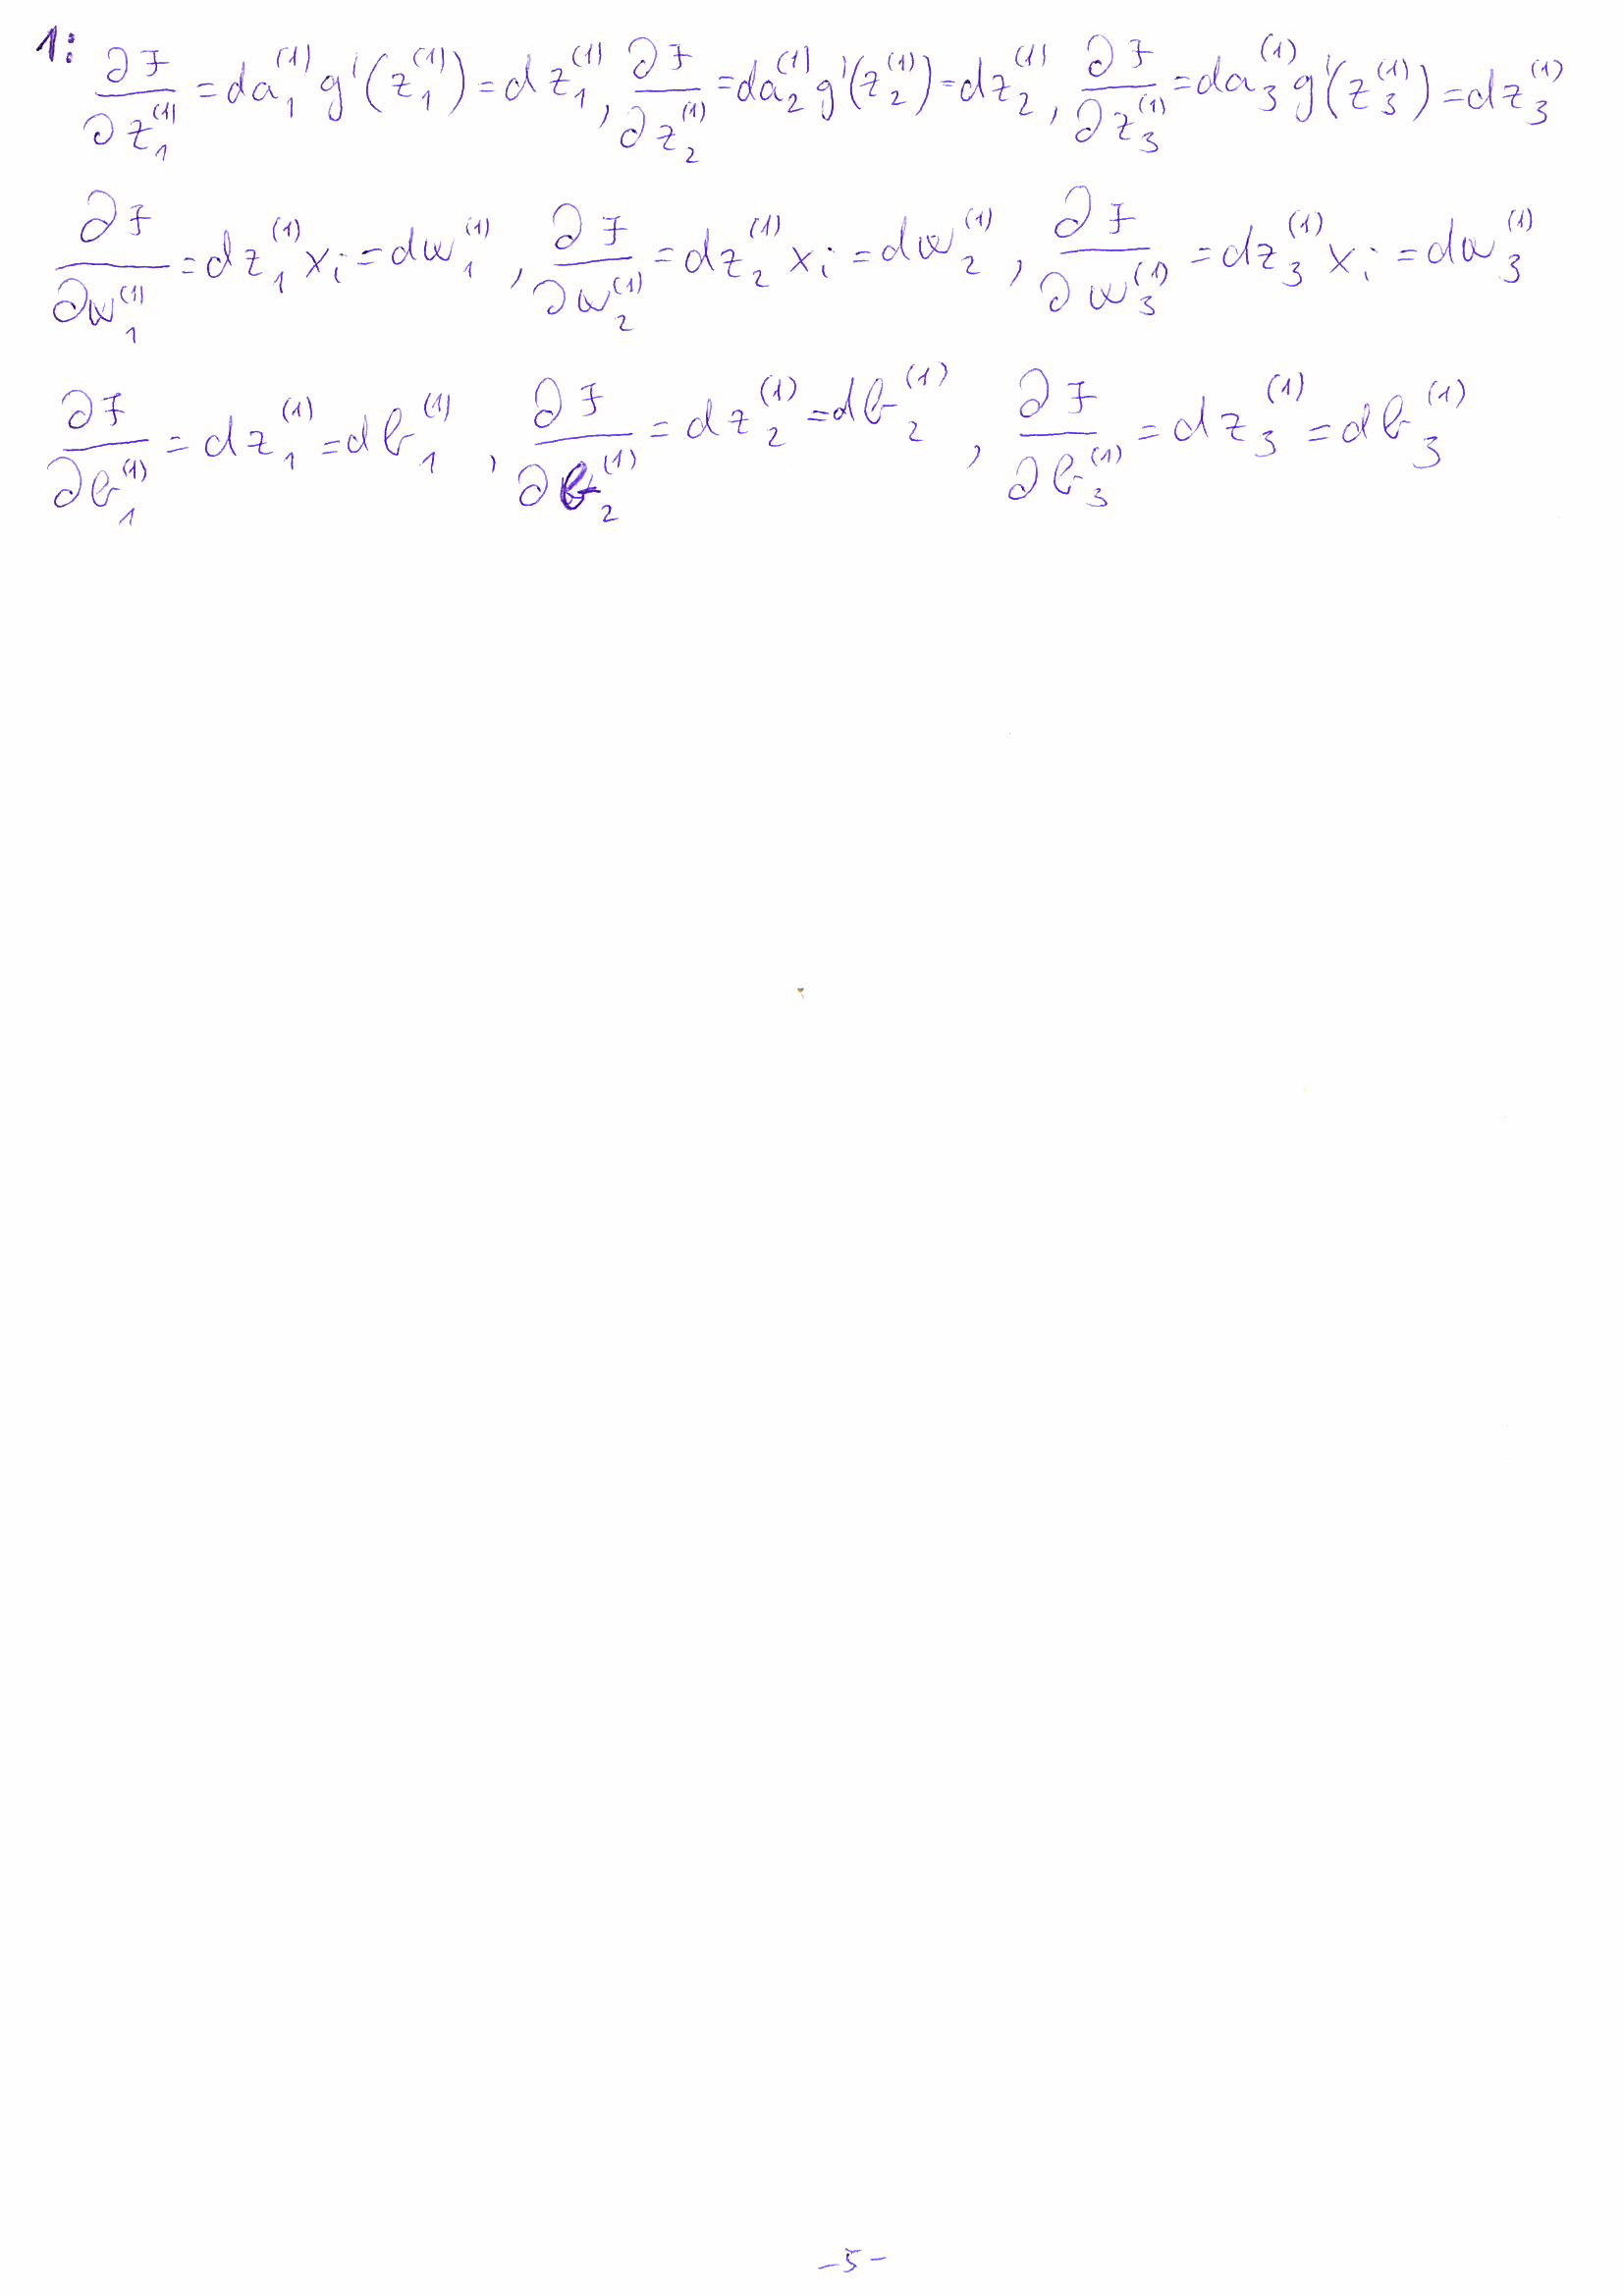 1: ∂J/∂z₁⁽¹⁾ = da₁⁽¹⁾ g'(z₁⁽¹⁾) = dz₁⁽¹⁾, ∂J/∂z₂⁽¹⁾ = da₂⁽¹⁾ g'(z₂⁽¹⁾) = dz₂⁽¹⁾, ∂J/∂z₃⁽¹⁾ = da₃⁽¹⁾ g'(z₃⁽¹⁾) = dz₃⁽¹⁾
∂J/∂w₁⁽¹⁾ = dz₁⁽¹⁾ xᵢ = dw₁⁽¹⁾, ∂J/∂w₂⁽¹⁾ = dz₂⁽¹⁾ xᵢ = dw₂⁽¹⁾, ∂J/∂w₃⁽¹⁾ = dz₃⁽¹⁾ xᵢ = dw₃⁽¹⁾
∂J/∂b₁⁽¹⁾ = dz₁⁽¹⁾ = db₁⁽¹⁾, ∂J/∂b₂⁽¹⁾ = dz₂⁽¹⁾ = db₂⁽¹⁾, ∂J/∂b₃⁽¹⁾ = dz₃⁽¹⁾ = db₃⁽¹⁾
-5-